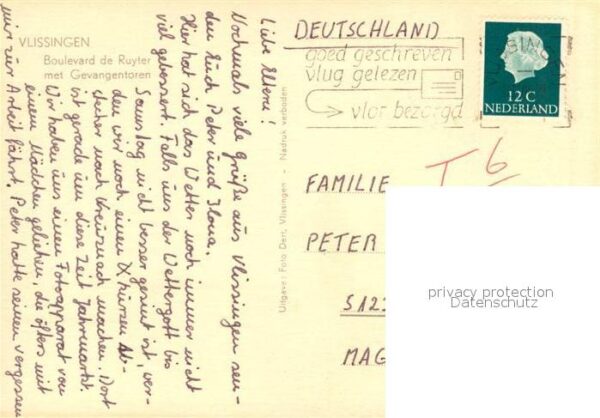 VLISSINGEN
Boulevard de Ruyter
met Gevangentoren
Liebe Eltern!
Nochmals viele Grüße aus Vlissingen sen-
den Euch Peter und Ilona.
Hier hat sich das Wetter noch immer nicht
viel gebessert. Falls uns der Wettergott bis
Samstag nicht besser gesinnt ist, wer-
den wir noch einen kurzen Ab-
stecher nach Kreuznach machen. Dort
ist gerade um diese Zeit Jahrmarkt.
Wir haben uns einen Fotoapparat von
einem Mädchen geliehen, die öfters mit
mir zur Arbeit fährt. Peter hatte seinen vergessen
Uitgave: Foto Dert, Vlissingen - Nadruk verboden
DEUTSCHLAND
goed geschreven
vlug gelezen
vlot bezorgd
12 C
NEDERLAND
T 6
FAMILIE
PETER
MAG
privacy protection
Datenschutz